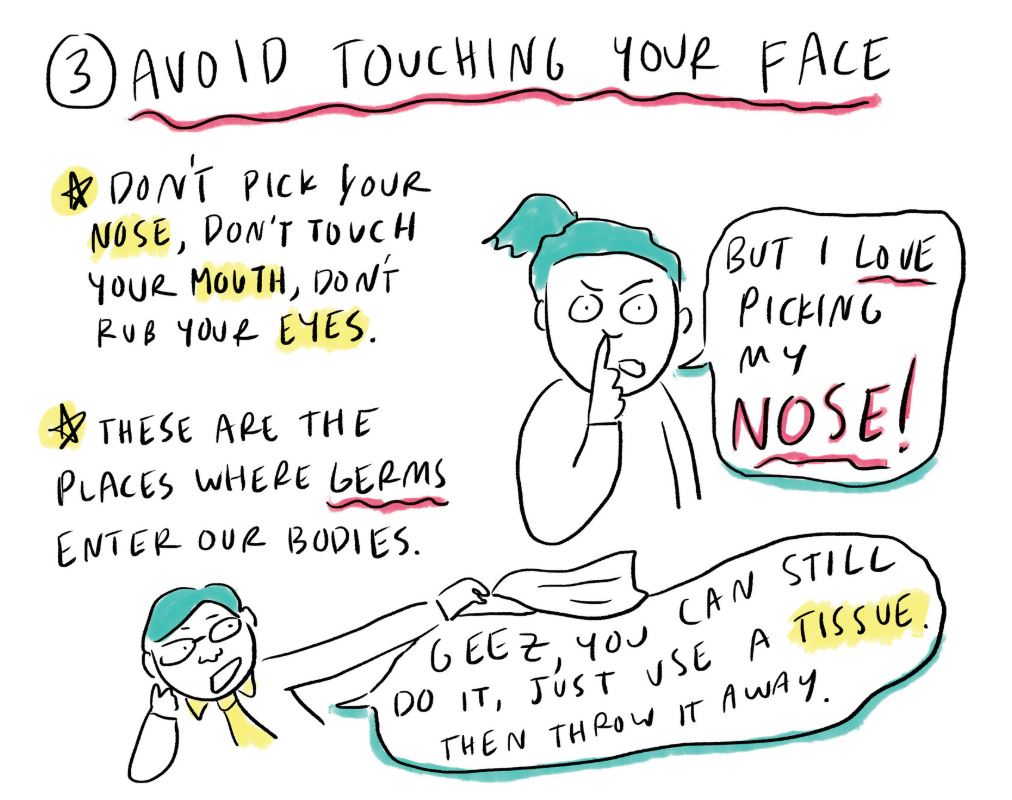 3 AVOID TOUCHING YOUR FACE
DON'T PICK YOUR
NOSE, DON'T TOUCH
YOUR MOUTH, DON'T
RUB YOUR EYES.
THESE ARE THE
PLACES WHERE GERMS
ENTER OUR BODIES.
BUT I LOVE
PICKING
MY
NOSE!
GEEZ, YOU CAN STILL
DO IT, JUST USE A TISSUE.
THEN THROW IT AWAY.